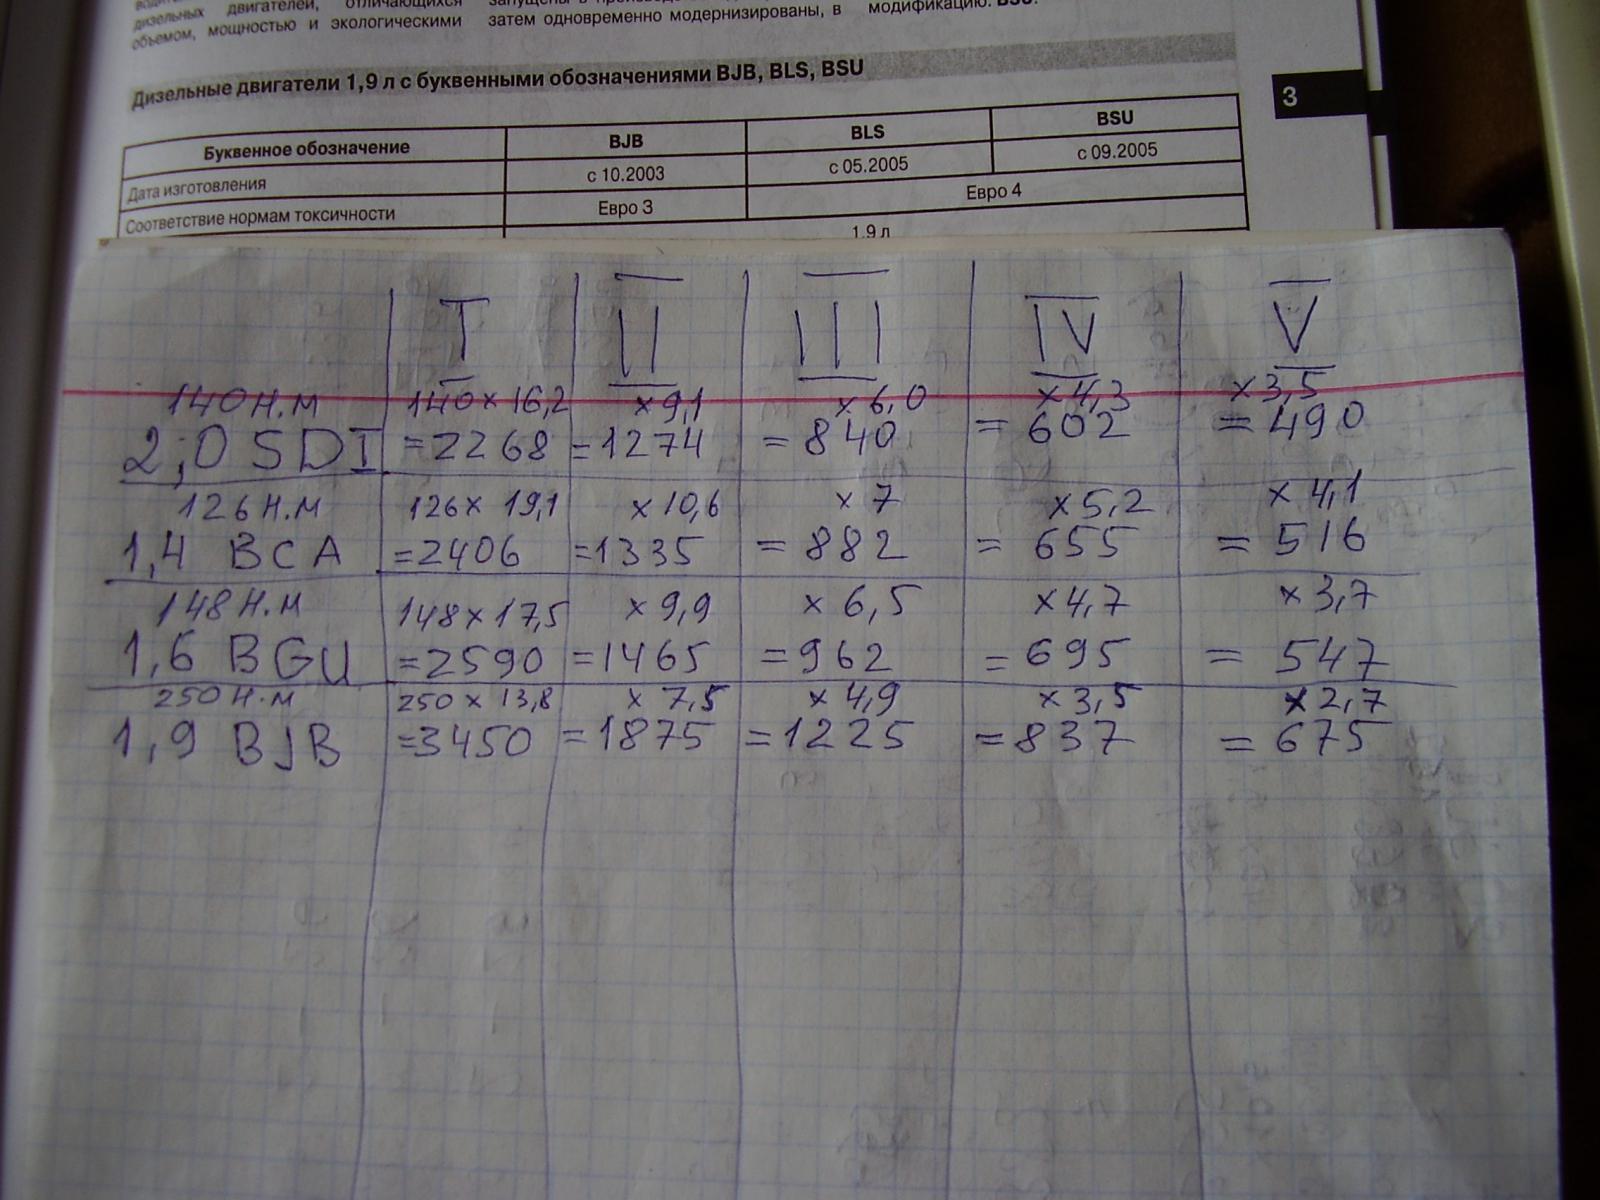 дизельных двигателей, отличающихся
объемом, мощностью и экологическими
затем одновременно модернизированы, в
модификацию. BSU.
Дизельные двигатели 1,9 л с буквенными обозначениями BJB, BLS, BSU
3
Буквенное обозначение BJB BLS BSU
Дата изготовления с 10.2003 с 05.2005 с 09.2005
Соответствие нормам токсичности Евро 3 Евро 4
1,9 л
I II III IV V
140 Н.М 140 x 16,2 x 9,1 x 6,0 x 4,3 x 3,5
2,0 SDI =2268 =1274 = 840 = 602 = 490
126 Н.М 126 x 19,1 x 10,6 x 7 x 5,2 x 4,1
1,4 BCA =2406 =1335 = 882 = 655 = 516
148 Н.М 148 x 17,5 x 9,9 x 6,5 x 4,7 x 3,7
1,6 BGU =2590 =1465 =962 = 695 = 547
250 Н.М 250 x 13,8 x 7,5 x 4,9 x 3,5 x 2,7
1,9 BJB =3450 =1875 =1225 =837 = 675